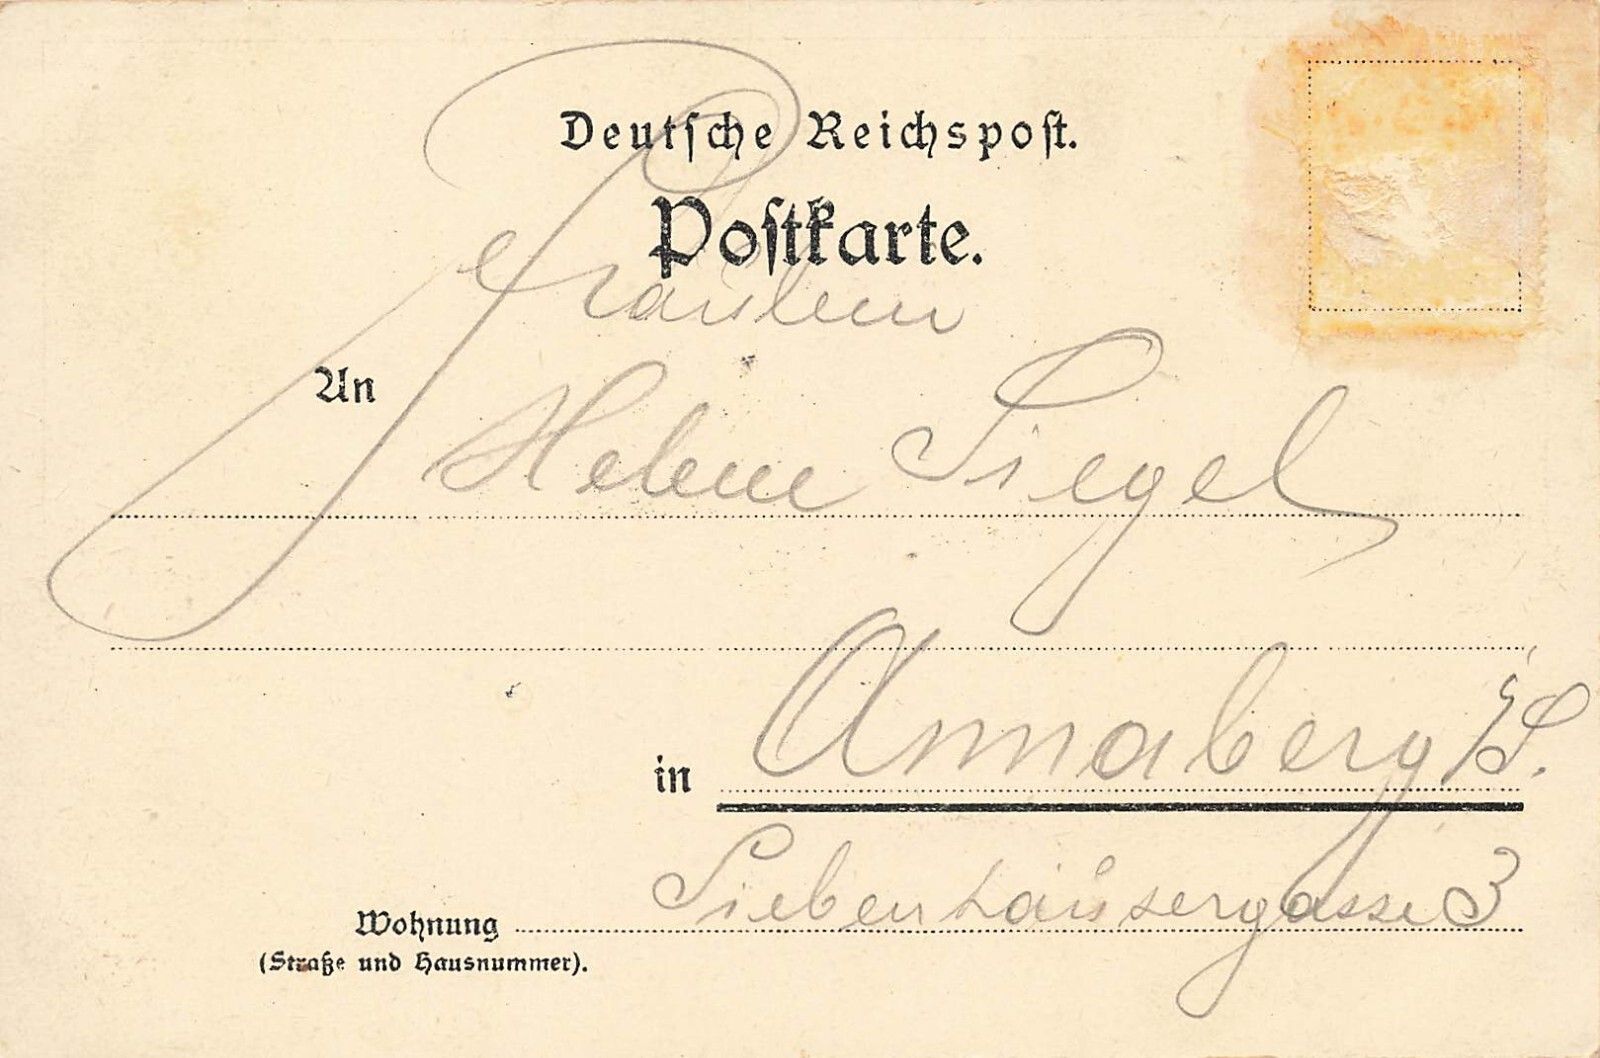 Deutsche Reichspost.
Postkarte.
Fräulein
An
Helene Siegel
in Annaberg i/S.
Siebenhäusergasse 3
Wohnung
(Straße und Hausnummer).